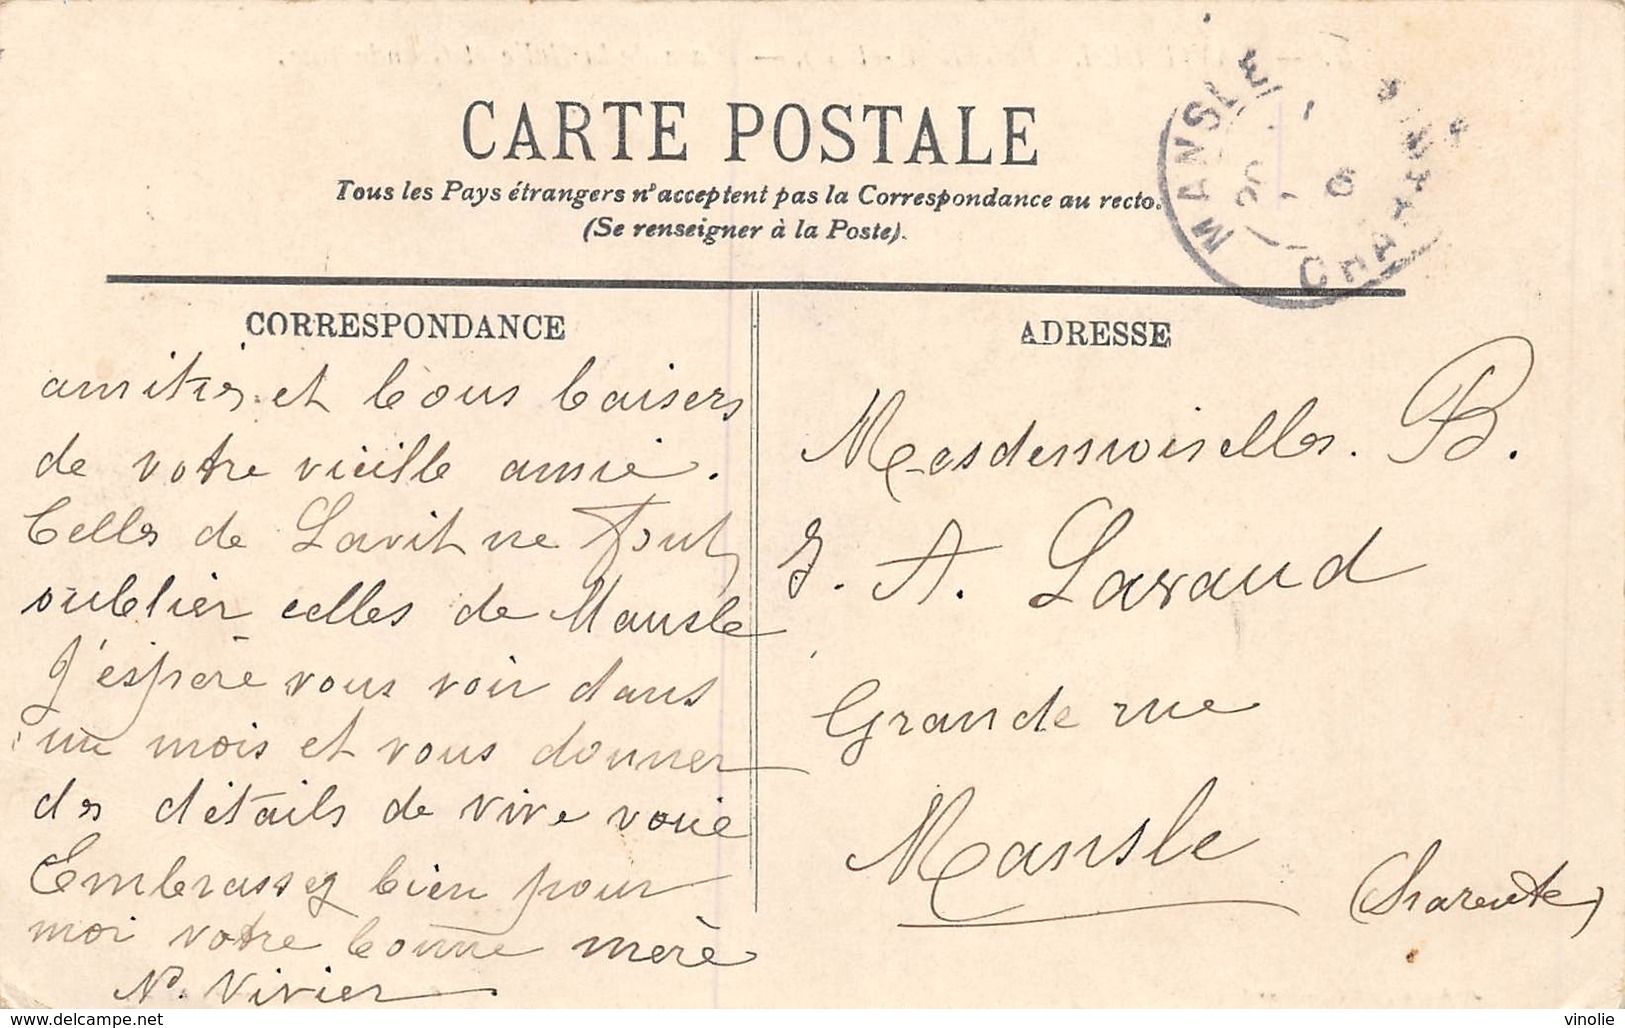 CARTE POSTALE
Tous les Pays étrangers n'acceptent pas la Correspondance au recto.
(Se renseigner à la Poste).
MANSLE
20
6
CHARENTE
CORRESPONDANCE
amitiés et bons baisers
de votre vieille amie.
Celles de Lavit ne font
oublier celles de Mansle
J'espère vous voir dans
un mois et vous donner
des détails de vive voie
Embrassez bien pour
moi votre bonne mère
N. Vivier
ADRESSE
Mesdemoiselles. B.
J. A. Lavaud
Grande rue
Mansle
(Charente)
delcampe.net
vinolie